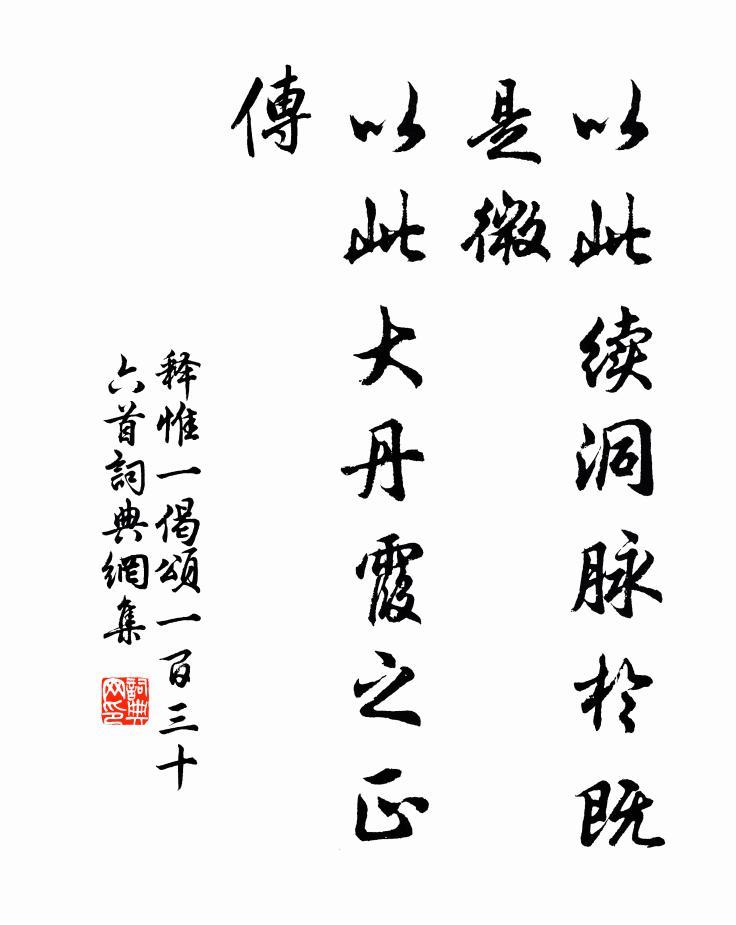 以此续洞脉於既
是微
以此大丹霞之正
傳
释惟一偈颂一百三十
六首詞典網集
詞典
网印